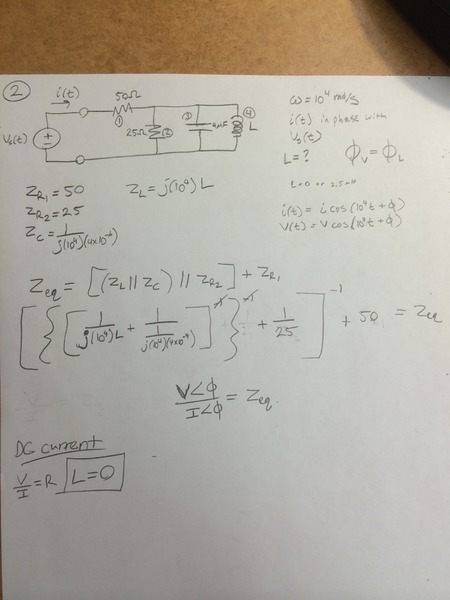 2
i(t)
50Ω
①
Vs(t)
25Ω
②
③
4μF
④
L
ω = 10⁴ rad/s
i(t) in phase with
Vs(t)
L = ? Φv = Φi
L = 0 or 2.5 mH
i(t) = i cos(10⁴t + Φ)
V(t) = V cos(10⁴t + Φ)
Z_R1 = 50 Z_L = j(10⁴)L
Z_R2 = 25
Z_C = 1/(j(10⁴)(4x10⁻⁶))
Z_eq = [(Z_L ∥ Z_C) ∥ Z_R2] + Z_R1
[{[1/(j(10⁴)L) + 1/(1/(j(10⁴)(4x10⁻⁶)))]⁻¹}⁻¹ + 1/25]⁻¹ + 50 = Z_eq
V∠Φ/I∠Φ = Z_eq
DC current
V/I = R L = 0